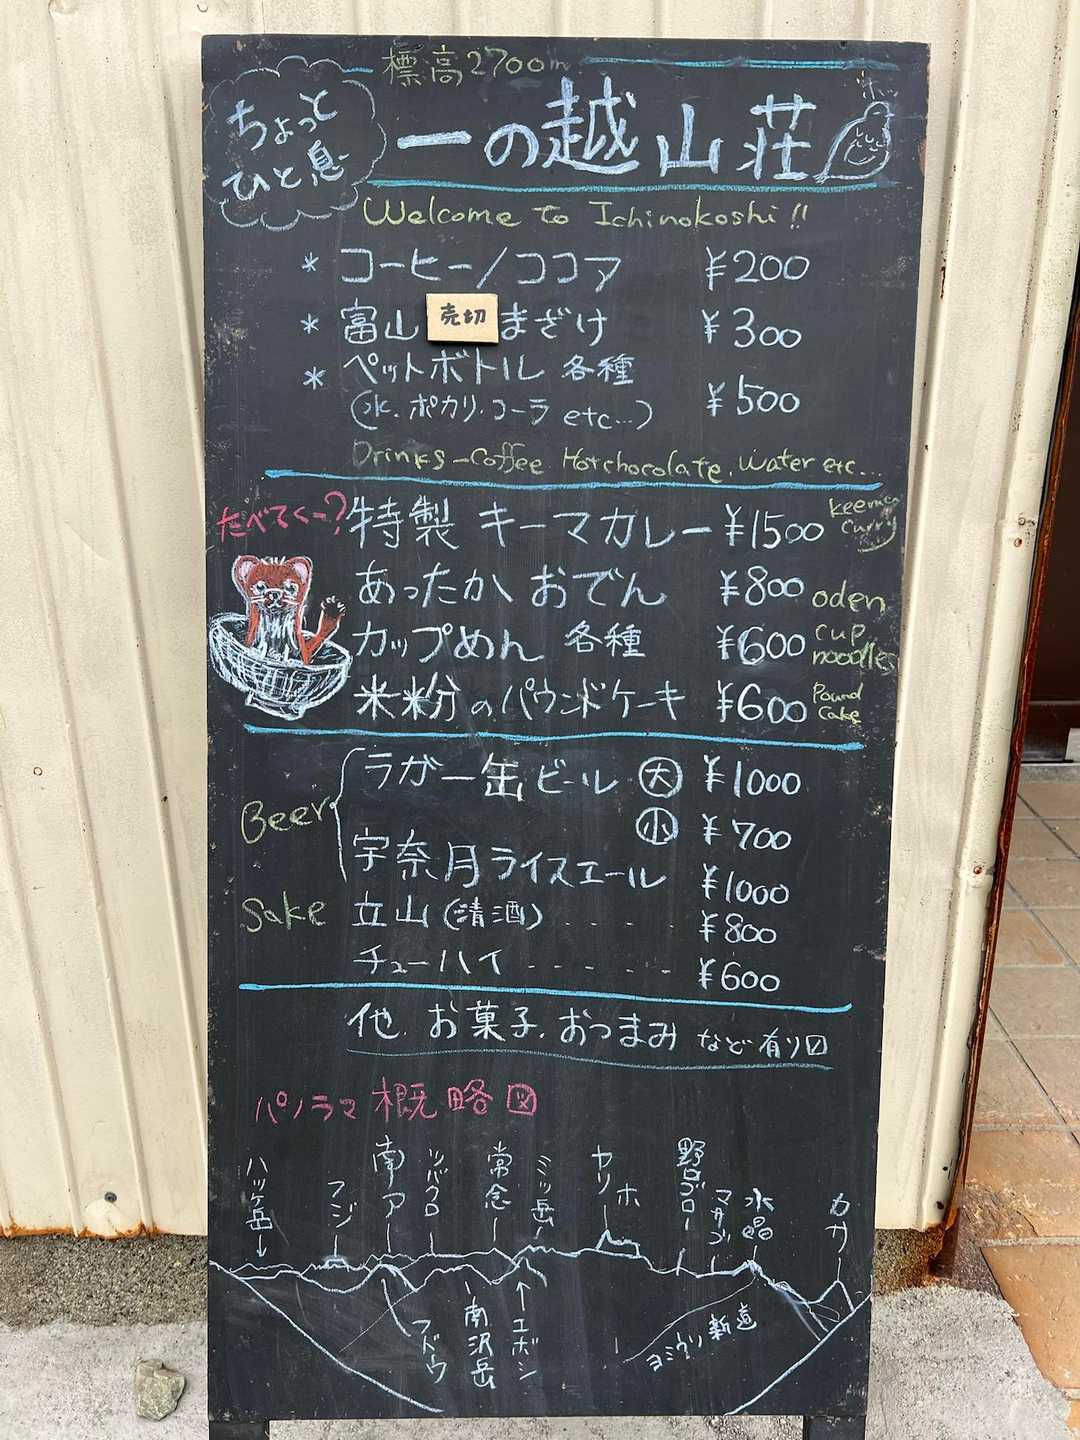 標高2700m
ちょっと
ひと息
一の越山荘
ホッ
Welcome to Ichinokoshi!!
* コーヒー/ココア ¥200
* 富山 売切 まざけ ¥300
* ペットボトル 各種 ¥500
(水、ポカリ、コーラ etc...)
Drinks - Coffee. Hotchocolate. water etc...
たべてくー?
特製 キーマカレー ¥1500 keema curry
あったか おでん ¥800 oden
カップめん 各種 ¥600 cup noodles
米粉のパウンドケーキ ¥600 Pound cake
Beer
ラガー缶ビール 大 ¥1000
小 ¥700
宇奈月ライスエール ¥1000
Sake
立山(清酒) . . . . ¥800
チューハイ - - - - - - ¥600
他、お菓子、おつまみ など有り〼
パノラマ概略図
八ッヶ岳
フジ
南ア
ツバクロ
常念
ミツ岳
ヤリ
ホ
野口ゴロー
マサゴ
水晶
カサ
フドウ
南沢岳
エボシ
ヨミウリ新道